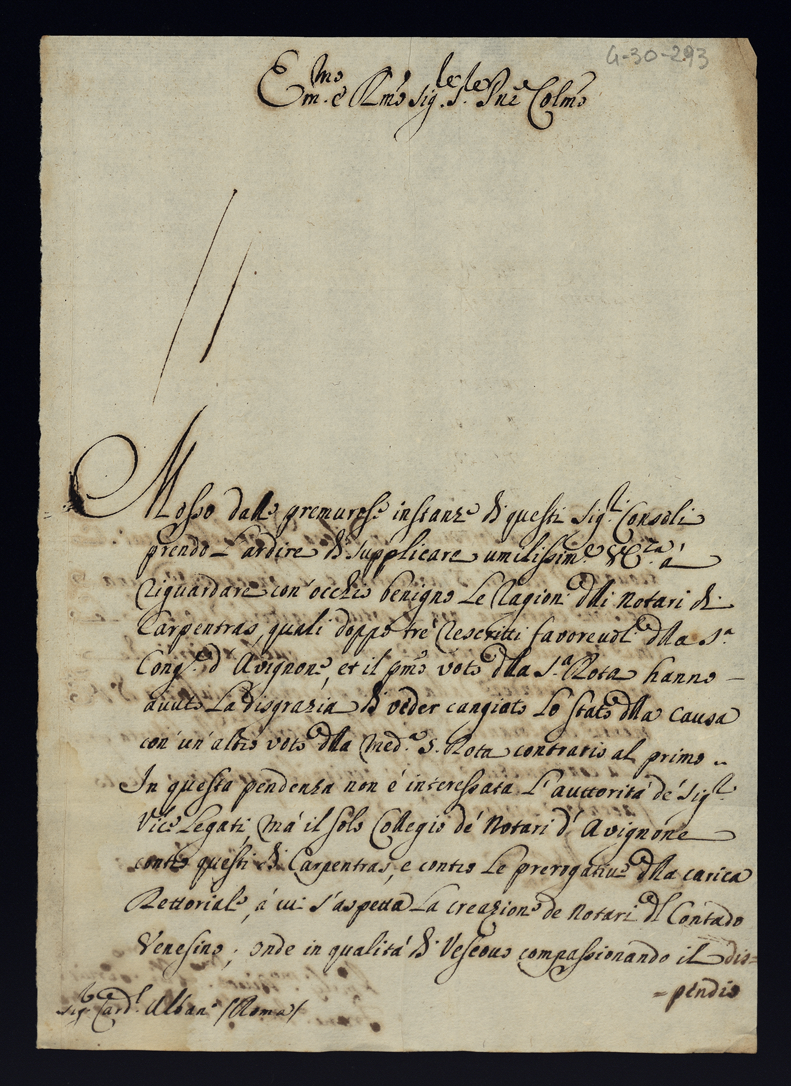 G-30-293
Em.mo e Rmo Sig.re Sig.re Pne Colmo
Mosso dalle premurose instanze di questi Sig.ri Consoli
prendo l'ardire di supplicare umilissim.e V. E.za à
riguardare con'occhio benigno le ragioni dlli Notari di
Carpentras, quali doppo trè rescritti favorevoli dlla S.a
Cong.e d'Avignone, et il pmo voto dlla S.a Rota hanno –
avuto la disgrazia di veder cangiato lo stato dlla causa
con'un'altro voto dlla med.a S. Rota contrario al primo ..
In questa pendenza non è interessata l'auttorità de' Sig.ri
Vice Legati, mà il solo Collegio de' Notari d'Avignone
contro questi di Carpentras, e contro le prerogative dlla carica
Rettoriale, à cui s'aspetta la creazione de Notari dl Contado
Venesino; onde in qualità di Vescovo compassionando il dis=
=pendio
Sig. Card.l Albani /Roma/